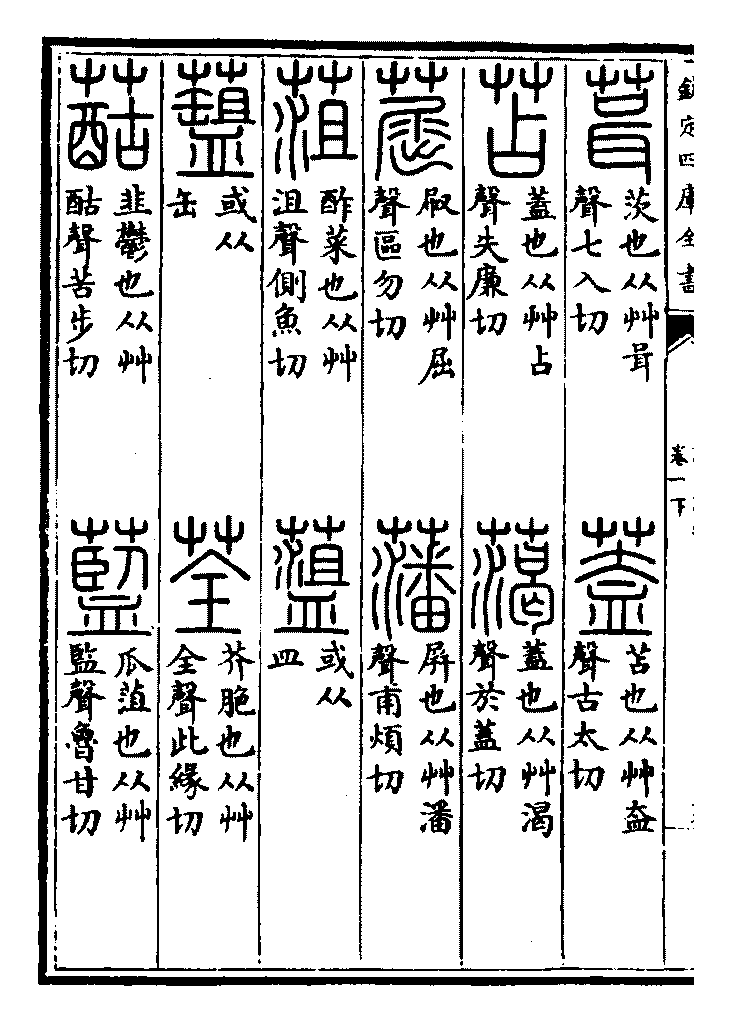 欽定四庫全書
卷一下
葺
茨也从艸咠
聲七入切
蓋
苫也从艸盇
聲古太切
苫
蓋也从艸占
聲失廉切
蓋也从艸渴
聲於蓋切
䓛
㕞也从艸屈
聲區勿切
藩
屏也从艸潘
聲甫煩切
菹
酢菜也从艸
沮聲側魚切
或从
皿
或从
缶
荃
芥脃也从艸
全聲此緣切
韭鬱也从艸
酤聲苦步切
藍
瓜菹也从艸
監聲魯甘切